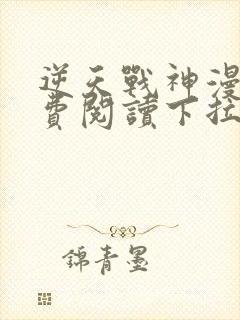 逆天戰神漫
費閱讀下拉
錦青墨